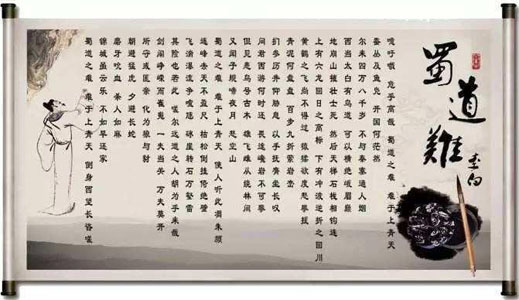 蜀道難
李白
噫吁嚱 危乎高哉 蜀道之难 难于上青天
蚕丛及鱼凫 开国何茫然
尔来四万八千岁 不与秦塞通人烟
西当太白有鸟道 可以横绝峨眉巅
地崩山摧壮士死 然后天梯石栈相钩连
上有六龙回日之高标 下有冲波逆折之回川
黄鹤之飞尚不得过 猿猱欲度愁攀援
青泥何盘盘 百步九折萦岩峦
扪参历井仰胁息 以手抚膺坐长叹
问君西游何时还 畏途巉岩不可攀
但见悲鸟号古木 雄飞雌从绕林间
又闻子规啼夜月 愁空山
蜀道之难 难于上青天 使人听此凋朱颜
连峰去天不盈尺 枯松倒挂倚绝壁
飞湍瀑流争喧豗 砯崖转石万壑雷
其险也若此 嗟尔远道之人胡为乎来哉
剑阁峥嵘而崔嵬 一夫当关 万夫莫开
所守或匪亲 化为狼与豺
朝避猛虎 夕避长蛇
磨牙吮血 杀人如麻
锦城虽云乐 不如早还家
蜀道之难 难于上青天 侧身西望长咨嗟